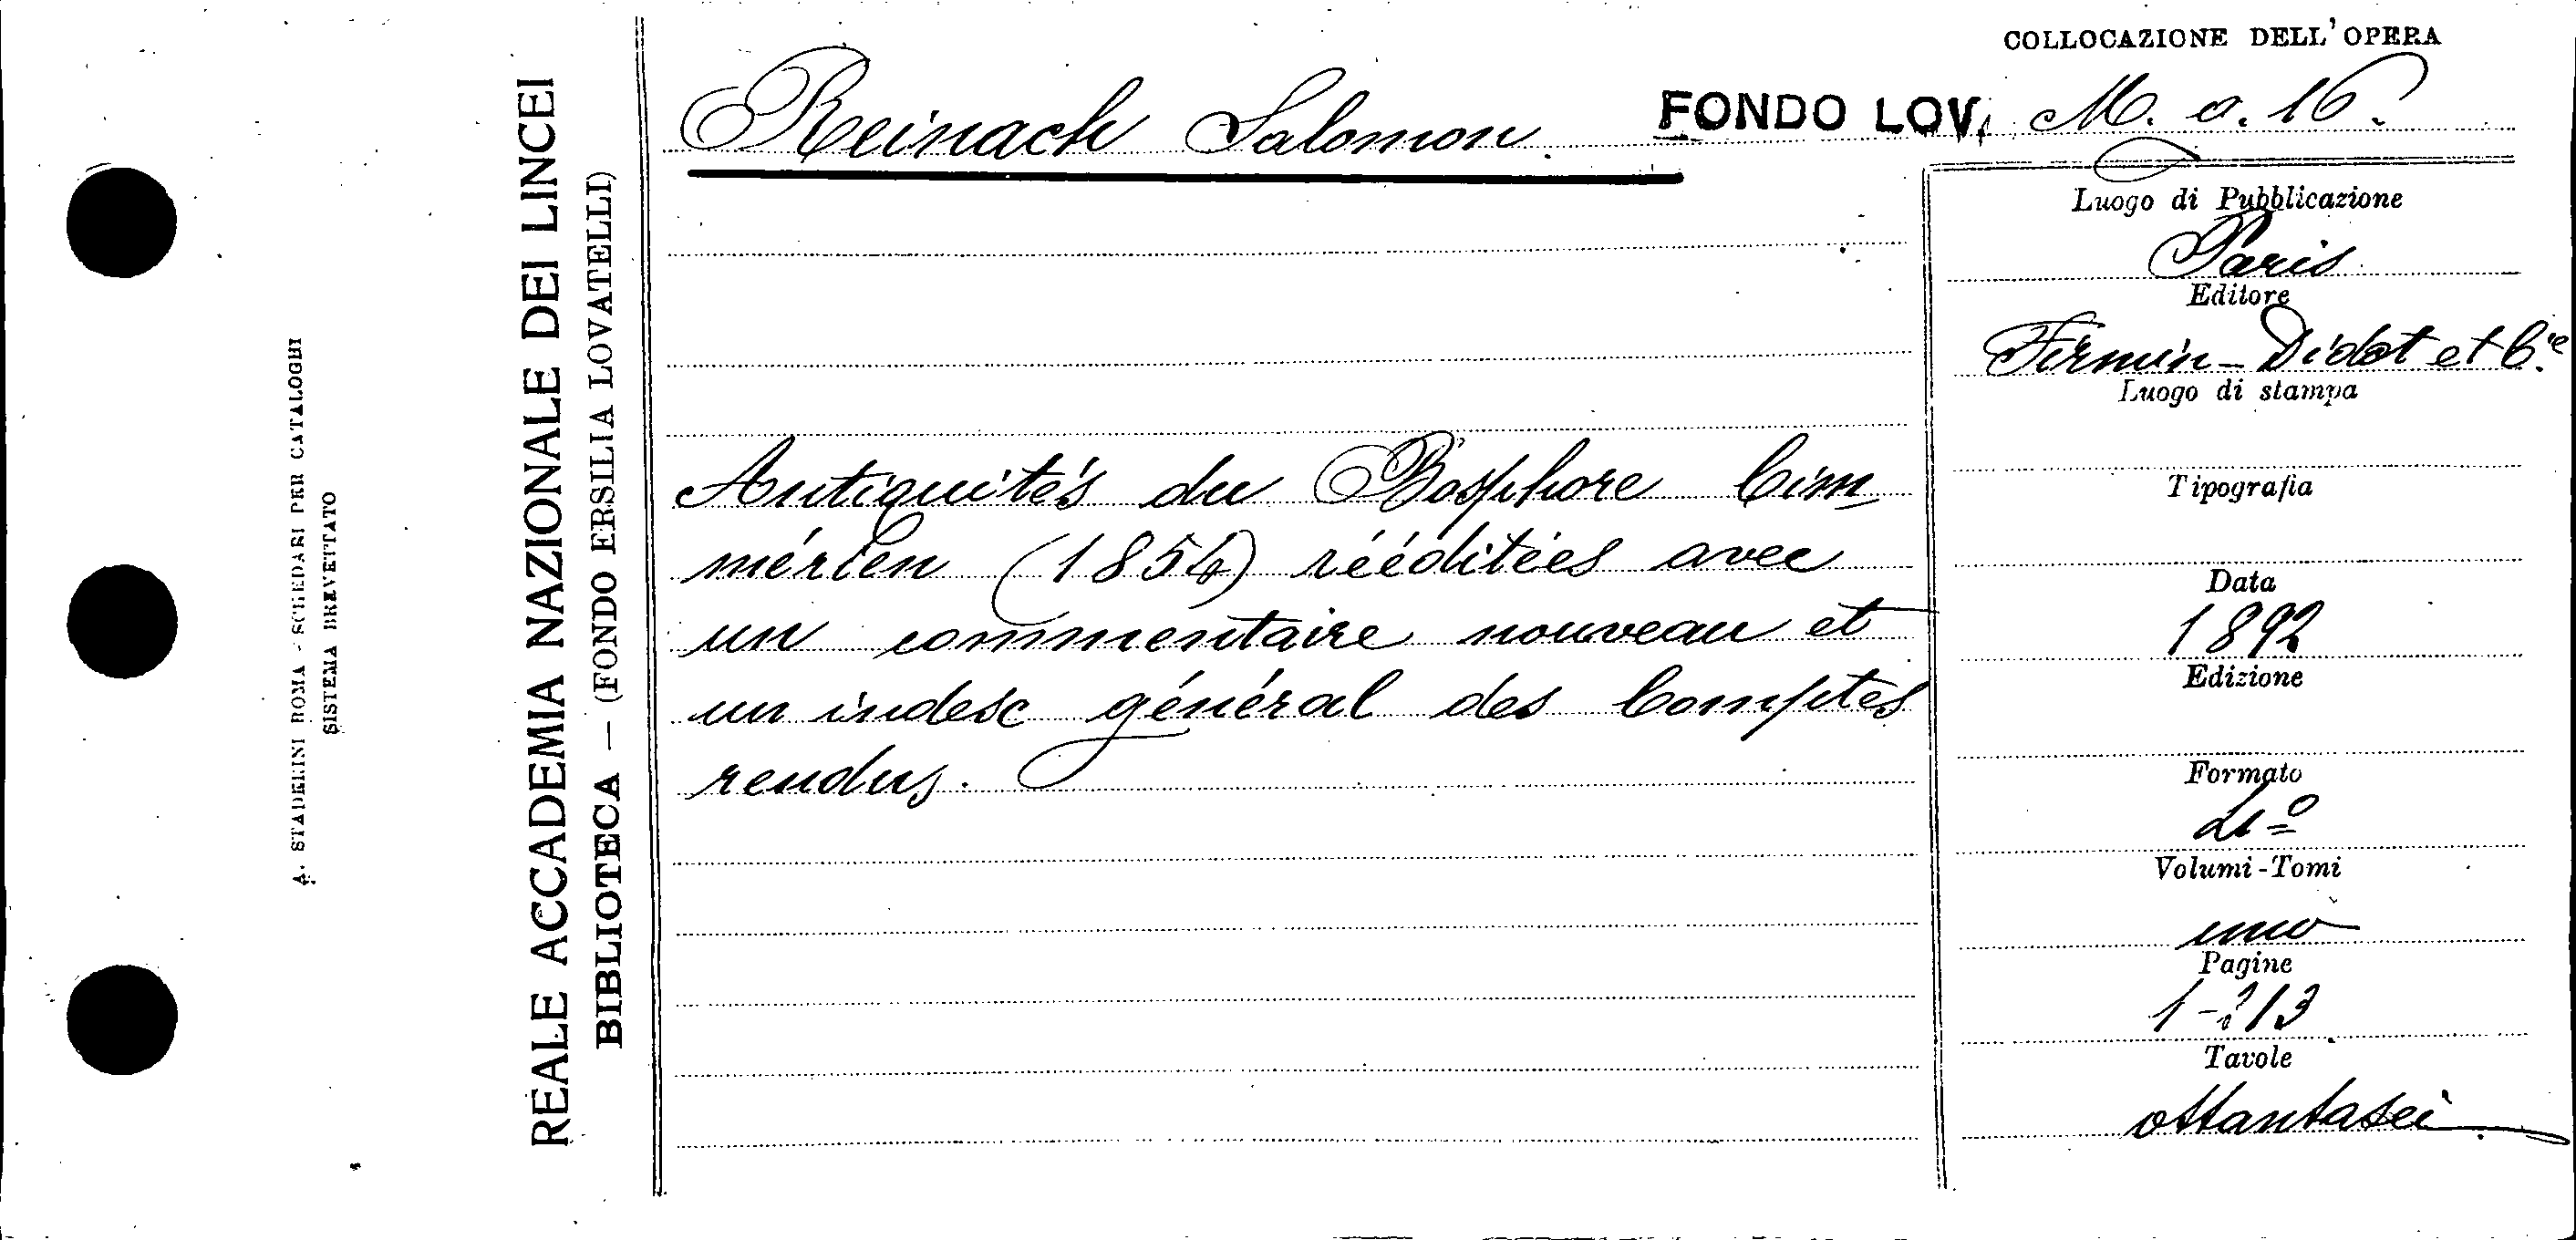 A. STADERINI ROMA - SCHEDARI PER CATALOGHI
SISTEMA BREVETTATO
REALE ACCADEMIA NAZIONALE DEI LINCEI
BIBLIOTECA — (FONDO ERSILIA LOVATELLI)
COLLOCAZIONE DELL'OPERA
Reinach Salomon. FONDO LOV. M. a. 16.
Antiquités du Bosphore Cim
mérien (1854) rééditées avec
un commentaire nouveau et
un index général des Comptes
rendus.
Luogo di Pubblicazione
Paris
Editore
Firmin-Didot et C.ie
Luogo di stampa
Tipografia
Data
1892
Edizione
Formato
4º
Volumi-Tomi
uno
Pagine
1-213
Tavole
ottantasei